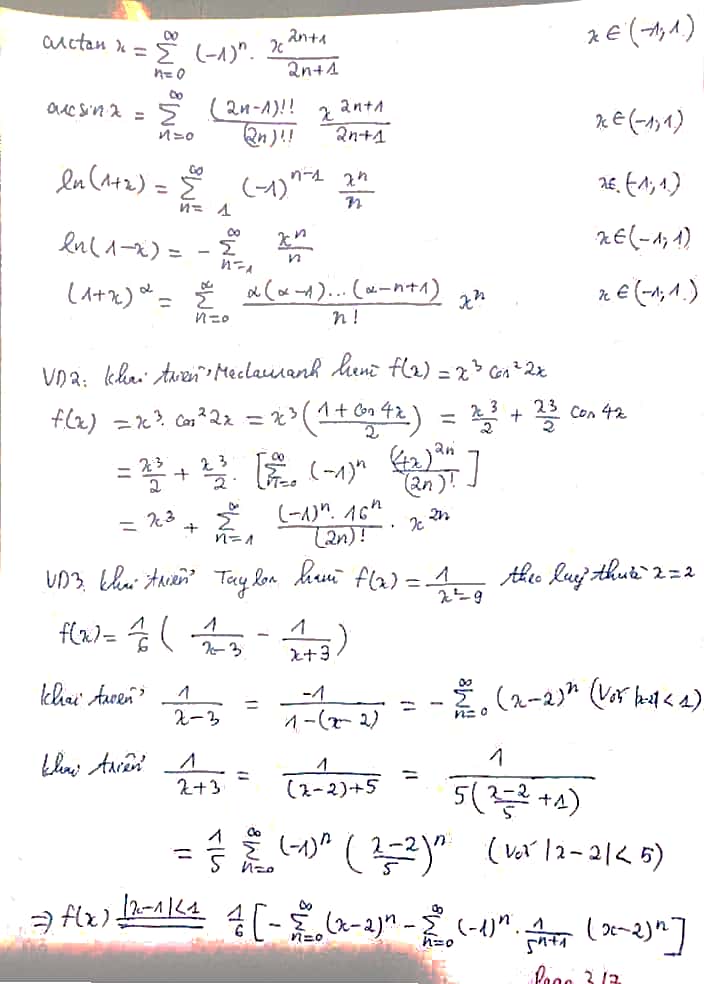 arctan x = ∑_{n=0}^{∞} (-1)^n . x^{2n+1}/(2n+1)    x ∈ (-1; 1.)
arcsin x = ∑_{n=0}^{∞} (2n-1)!!/(2n)!! x^{2n+1}/(2n+1)    x ∈ (-1; 1)
ln(1+x) = ∑_{n=1}^{∞} (-1)^{n-1} x^n/n    x ∈ (-1; 1.)
ln(1-x) = - ∑_{n=1}^{∞} x^n/n    x ∈ (-1; 1)
(1+x)^α = ∑_{n=0}^{∞} α(α-1)...(α-n+1)/n! x^n    x ∈ (-1; 1.)
VD2: khai triển Maclauranh hàm f(x) = x^3 cos^2 2x
f(x) = x^3. cos^2 2x = x^3 ((1 + cos 4x)/2) = x^3/2 + x^3/2 cos 4x
= x^3/2 + x^3/2 . [∑_{n=0}^{∞} (-1)^n (4x)^{2n}/(2n)!]
= x^3 + ∑_{n=1}^{∞} (-1)^n. 16^n/(2n)! . x^{2n}
VD3. khai triển Taylor hàm f(x) = 1/(x^2-9) theo luỹ thừa x=2
f(x) = 1/6 (1/(x-3) - 1/(x+3))
khai triển 1/(x-3) = -1/(1-(x-2)) = - ∑_{n=0}^{∞} (x-2)^n (Với |x-2| < 1)
khai triển 1/(x+3) = 1/((x-2)+5) = 1/(5((x-2)/5 + 1))
= 1/5 ∑_{n=0}^{∞} (-1)^n ((x-2)/5)^n (với |x-2| < 5)
⇒ f(x) |x-1|<1 = 1/6 [- ∑_{n=0}^{∞} (x-2)^n - ∑_{n=0}^{∞} (-1)^n . 1/5^{n+1} (x-2)^n]
Page 217